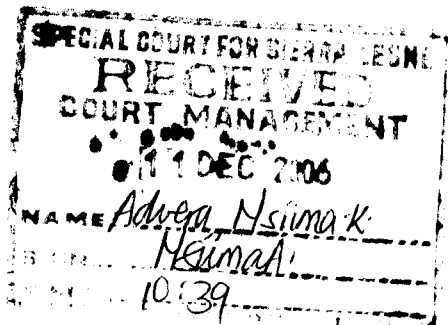 SPECIAL COURT FOR SIERRA LEONE
RECEIVED
COURT MANAGEMENT
11 DEC 2006
NAME Advera Nsiima K.
SIGN NsiimaA.
10:39